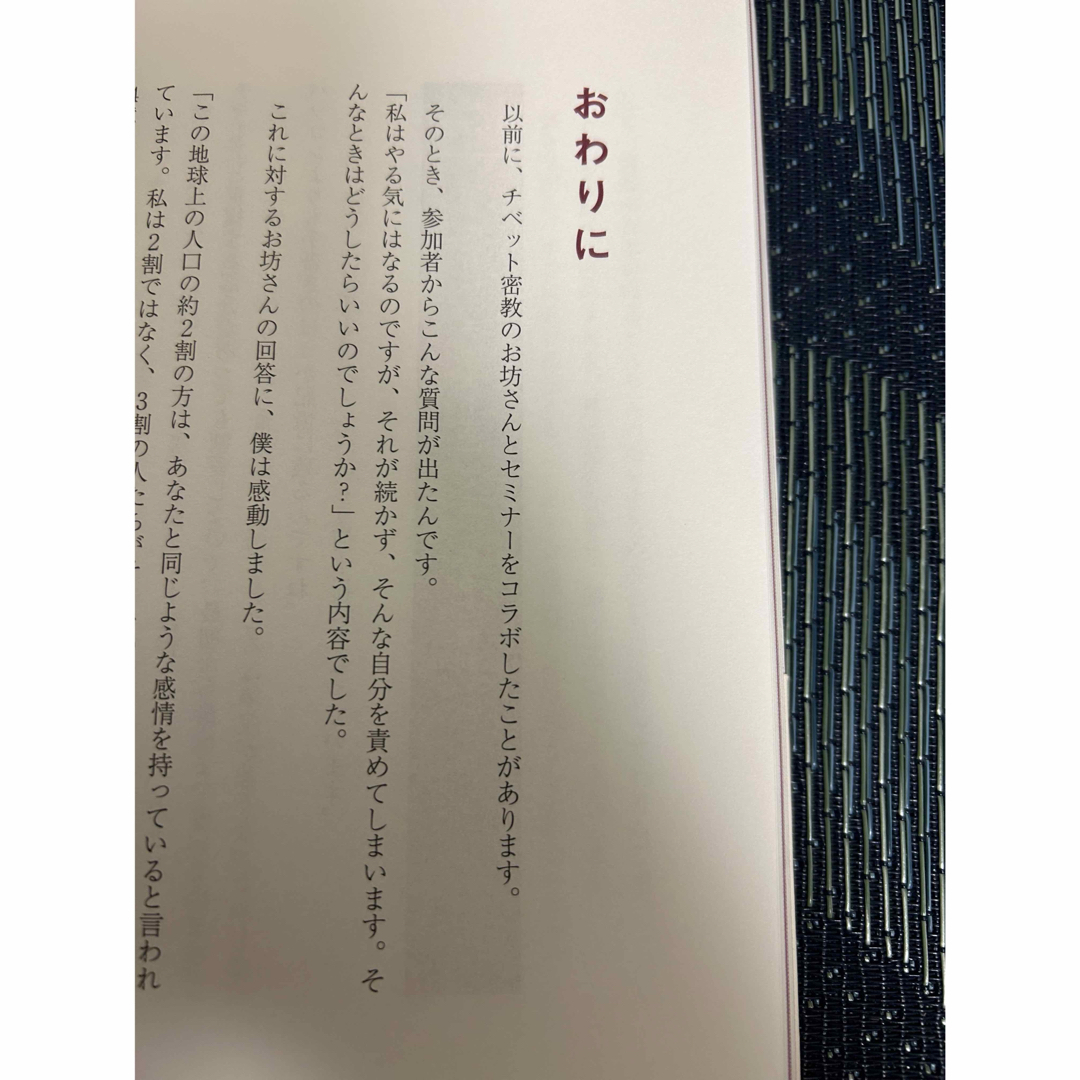 おわりに
以前に、チベット密教のお坊さんとセミナーをコラボしたことがあります。
そのとき、参加者からこんな質問が出たんです。
「私はやる気にはなるのですが、それが続かず、そんな自分を責めてしまいます。そ
んなときはどうしたらいいのでしょうか?」という内容でした。
これに対するお坊さんの回答に、僕は感動しました。
「この地球上の人口の約2割の方は、あなたと同じような感情を持っていると言われ
ています。私は2割ではなく、3割の人たちが